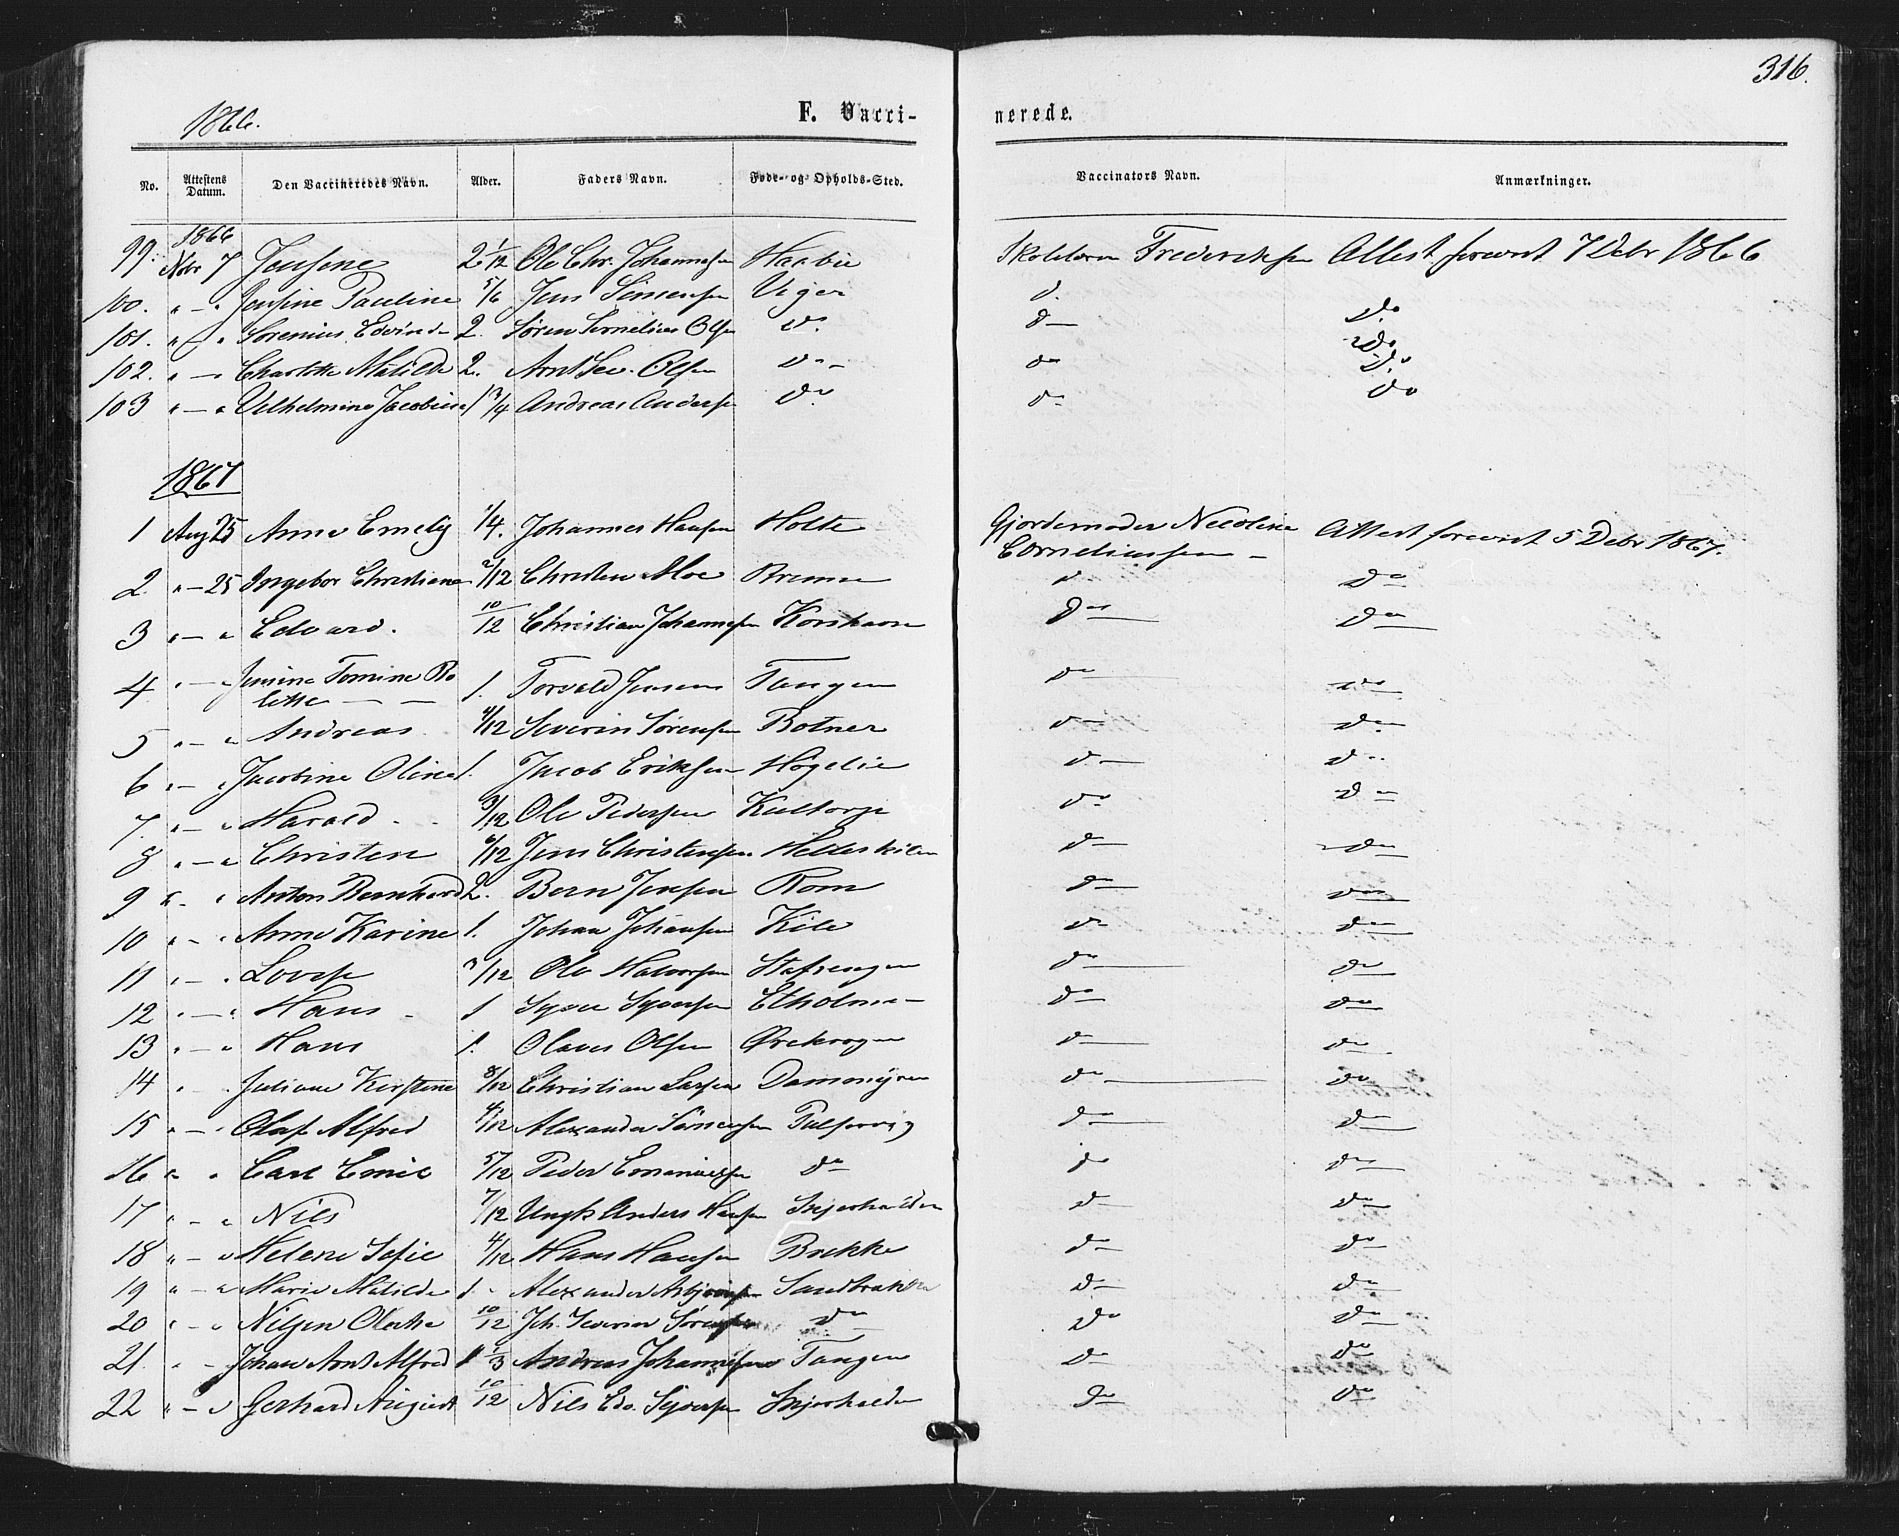 316.
1866.
F. Vacci-
nerede.
No. Attestens Datum. Den Vaccineredes Navn. Alder. Faders Navn. Føde- og Opholds-Sted. Vaccinators Navn. Anmærkninger.
1866
99. Nobr 7 Jensine 2 1/12 Ole Chr. Johannesen Haabie Skolelærer Frederiksen Attest forevist 7 Debr 1866
100. " - " Jensine Pauline 5/6 Jens Simensen Viger d.
101. " " Sorenius Edvind 2. Søren Cornelius Olsen do. d- do
102. " - " Charlotte Matilde 2. Arnt Sev. Olsen do - do do
103 " - " Vilhelmine Jacobine 1 3/4 Andreas Andersen do do do
1867
1 Aug 25 Anne Emelÿ 1/4. Johannes Hansen Holte Gjordemoder Nicoline Corneliussen - Attest forevist 5 Debr 1867.
2. " - 25 Ingebor Christiane 2/12 Christen Moe Bremse d do
3 " - " Edvard. 10/12 Christian Johannesen Korshavn do do
4 " - " Jensine Tomine Bo
lette - - 1. Torvald Jensen Tangen do do
5 " - " Andreas 4/12 Severin Sørensen Botner do do
6 " - " Jacobine Oline 1. Jacob Eriksen Høgelie do do
7. " - " Harald - 3/12 Ole Pedersen Kultorp do do
8 " - " Christen 6/12 Jens Christensen Helleskilen do do
9 " - " Anton Bernhard 2. Bern Jensen Rom do do
10 " - " Anne Karine 1. Johan Johansen Kile do do
11 " - " Lovise /12 Ole Halvorsen Stafsengen do do
12 " - " Hans - 1 Syver Syversen Etholmen do do
13 " - " Hans 1. Olaves Olsen Ørekrogen do do
14 " " Juliane Kirstine 8/12 Christian Larsen Dammyren do do
15 " - " Olaf Alfred 4/12 Alexander Sørensen Pulservig do do
16 " " Carl Emil 5/12 Peder Emanuelsen do do do
17 " - " Nils 7/12 Ungk Anders Hansen Skjerhalden do do
18 " - " Helene Sofie 4/12 Hans Hansen Brekke do do
19 " - " Marie Matilde 1 - Alexander Asbjørnsen Sandbrakke do do
20 " - " Nilsen Olerke 10/12 Joh. Severin Sørensen do do do
21. " - Johan Arnt Alfred 1/3 Andreas Johannesen Tangen do do
22 " - " Gerhard August 10/12 Nils Edv. Syversen Skjerhalden do do